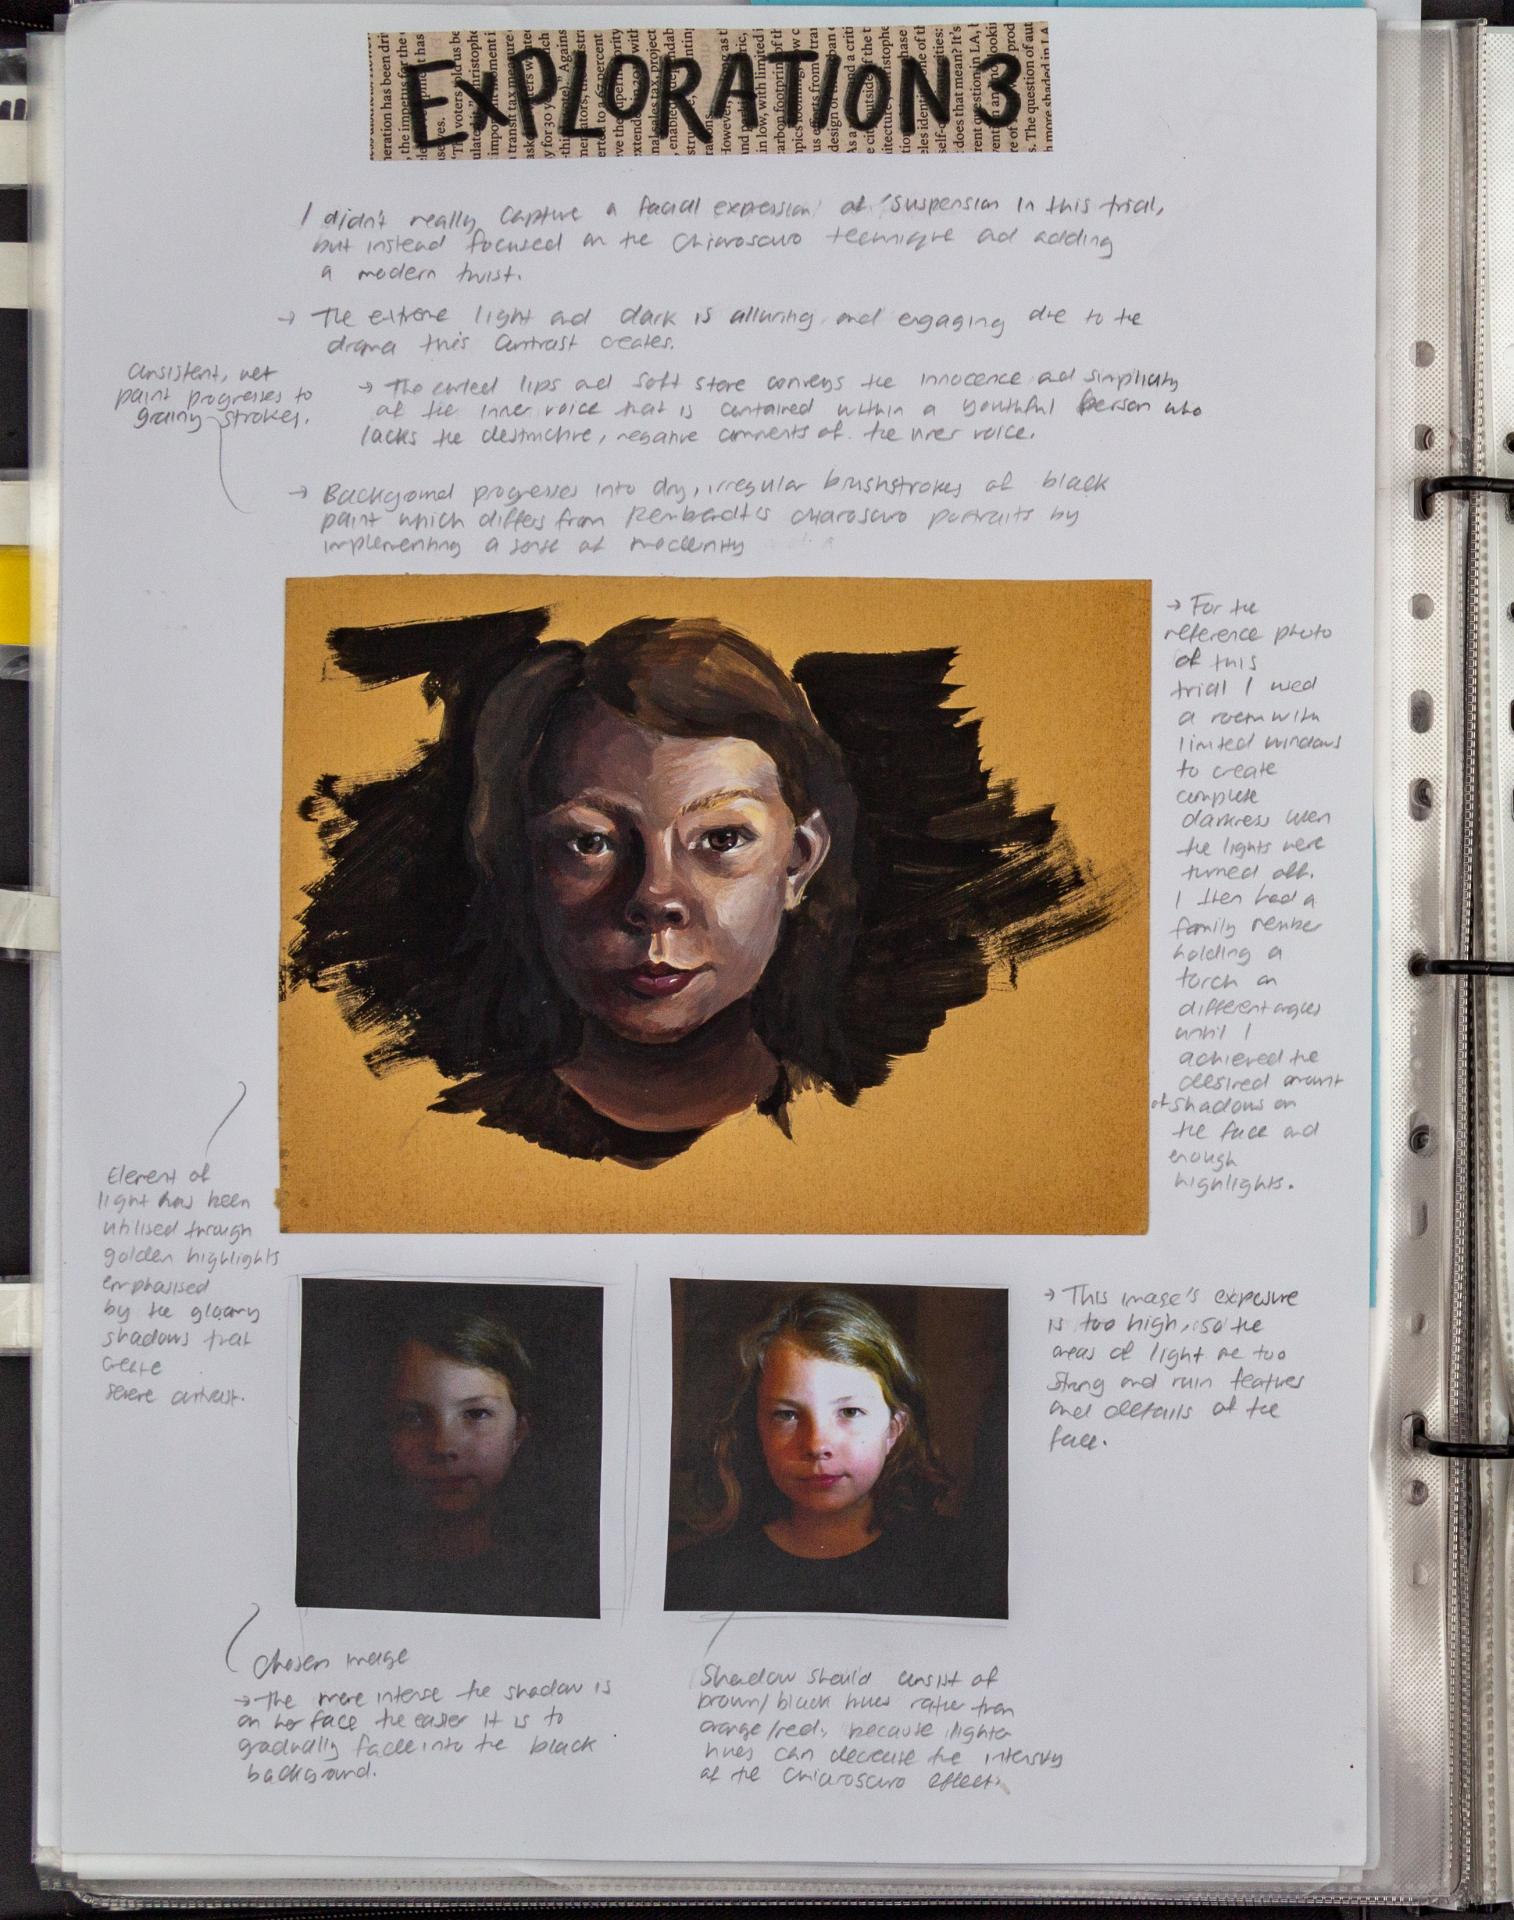 EXPLORATION 3
I didn't really capture a facial expression of suspension in this trial,
but instead focused on the chiaroscuro technique and adding
a modern twist.
→ The extreme light and dark is alluring and engaging due to the
drama this contrast creates.
consistent, wet
paint progresses to
grainy strokes.
→ The curled lips and soft stare conveys the innocence and simplicity
of the inner voice that is contained within a youthful person who
lacks the destructive, negative comments of the inner voice.
→ Background progresses into dry, irregular brushstrokes of black
paint which differs from Rembrandt's chiaroscuro portraits by
implementing a sense of modernity
→ For the
reference photo
of this
trial I used
a room with
limited windows
to create
complete
darkness when
the lights were
turned off.
I then had a
family member
holding a
torch on
different angles
until I
achieved the
desired amount
of shadows on
the face and
enough
highlights.
Element of
light has been
utilised through
golden highlights
emphasised
by the gloomy
shadows that
create
severe contrast.
→ This image's exposure
is too high, so the
areas of light are too
strong and ruin features
and details of the
face.
Chosen image
→ The more intense the shadow is
on her face the easier it is to
gradually fade into the black
background.
Shadow should consist of
brown/black hues rather than
orange/red, because lighter
hues can decrease the intensity
of the chiaroscuro effect.